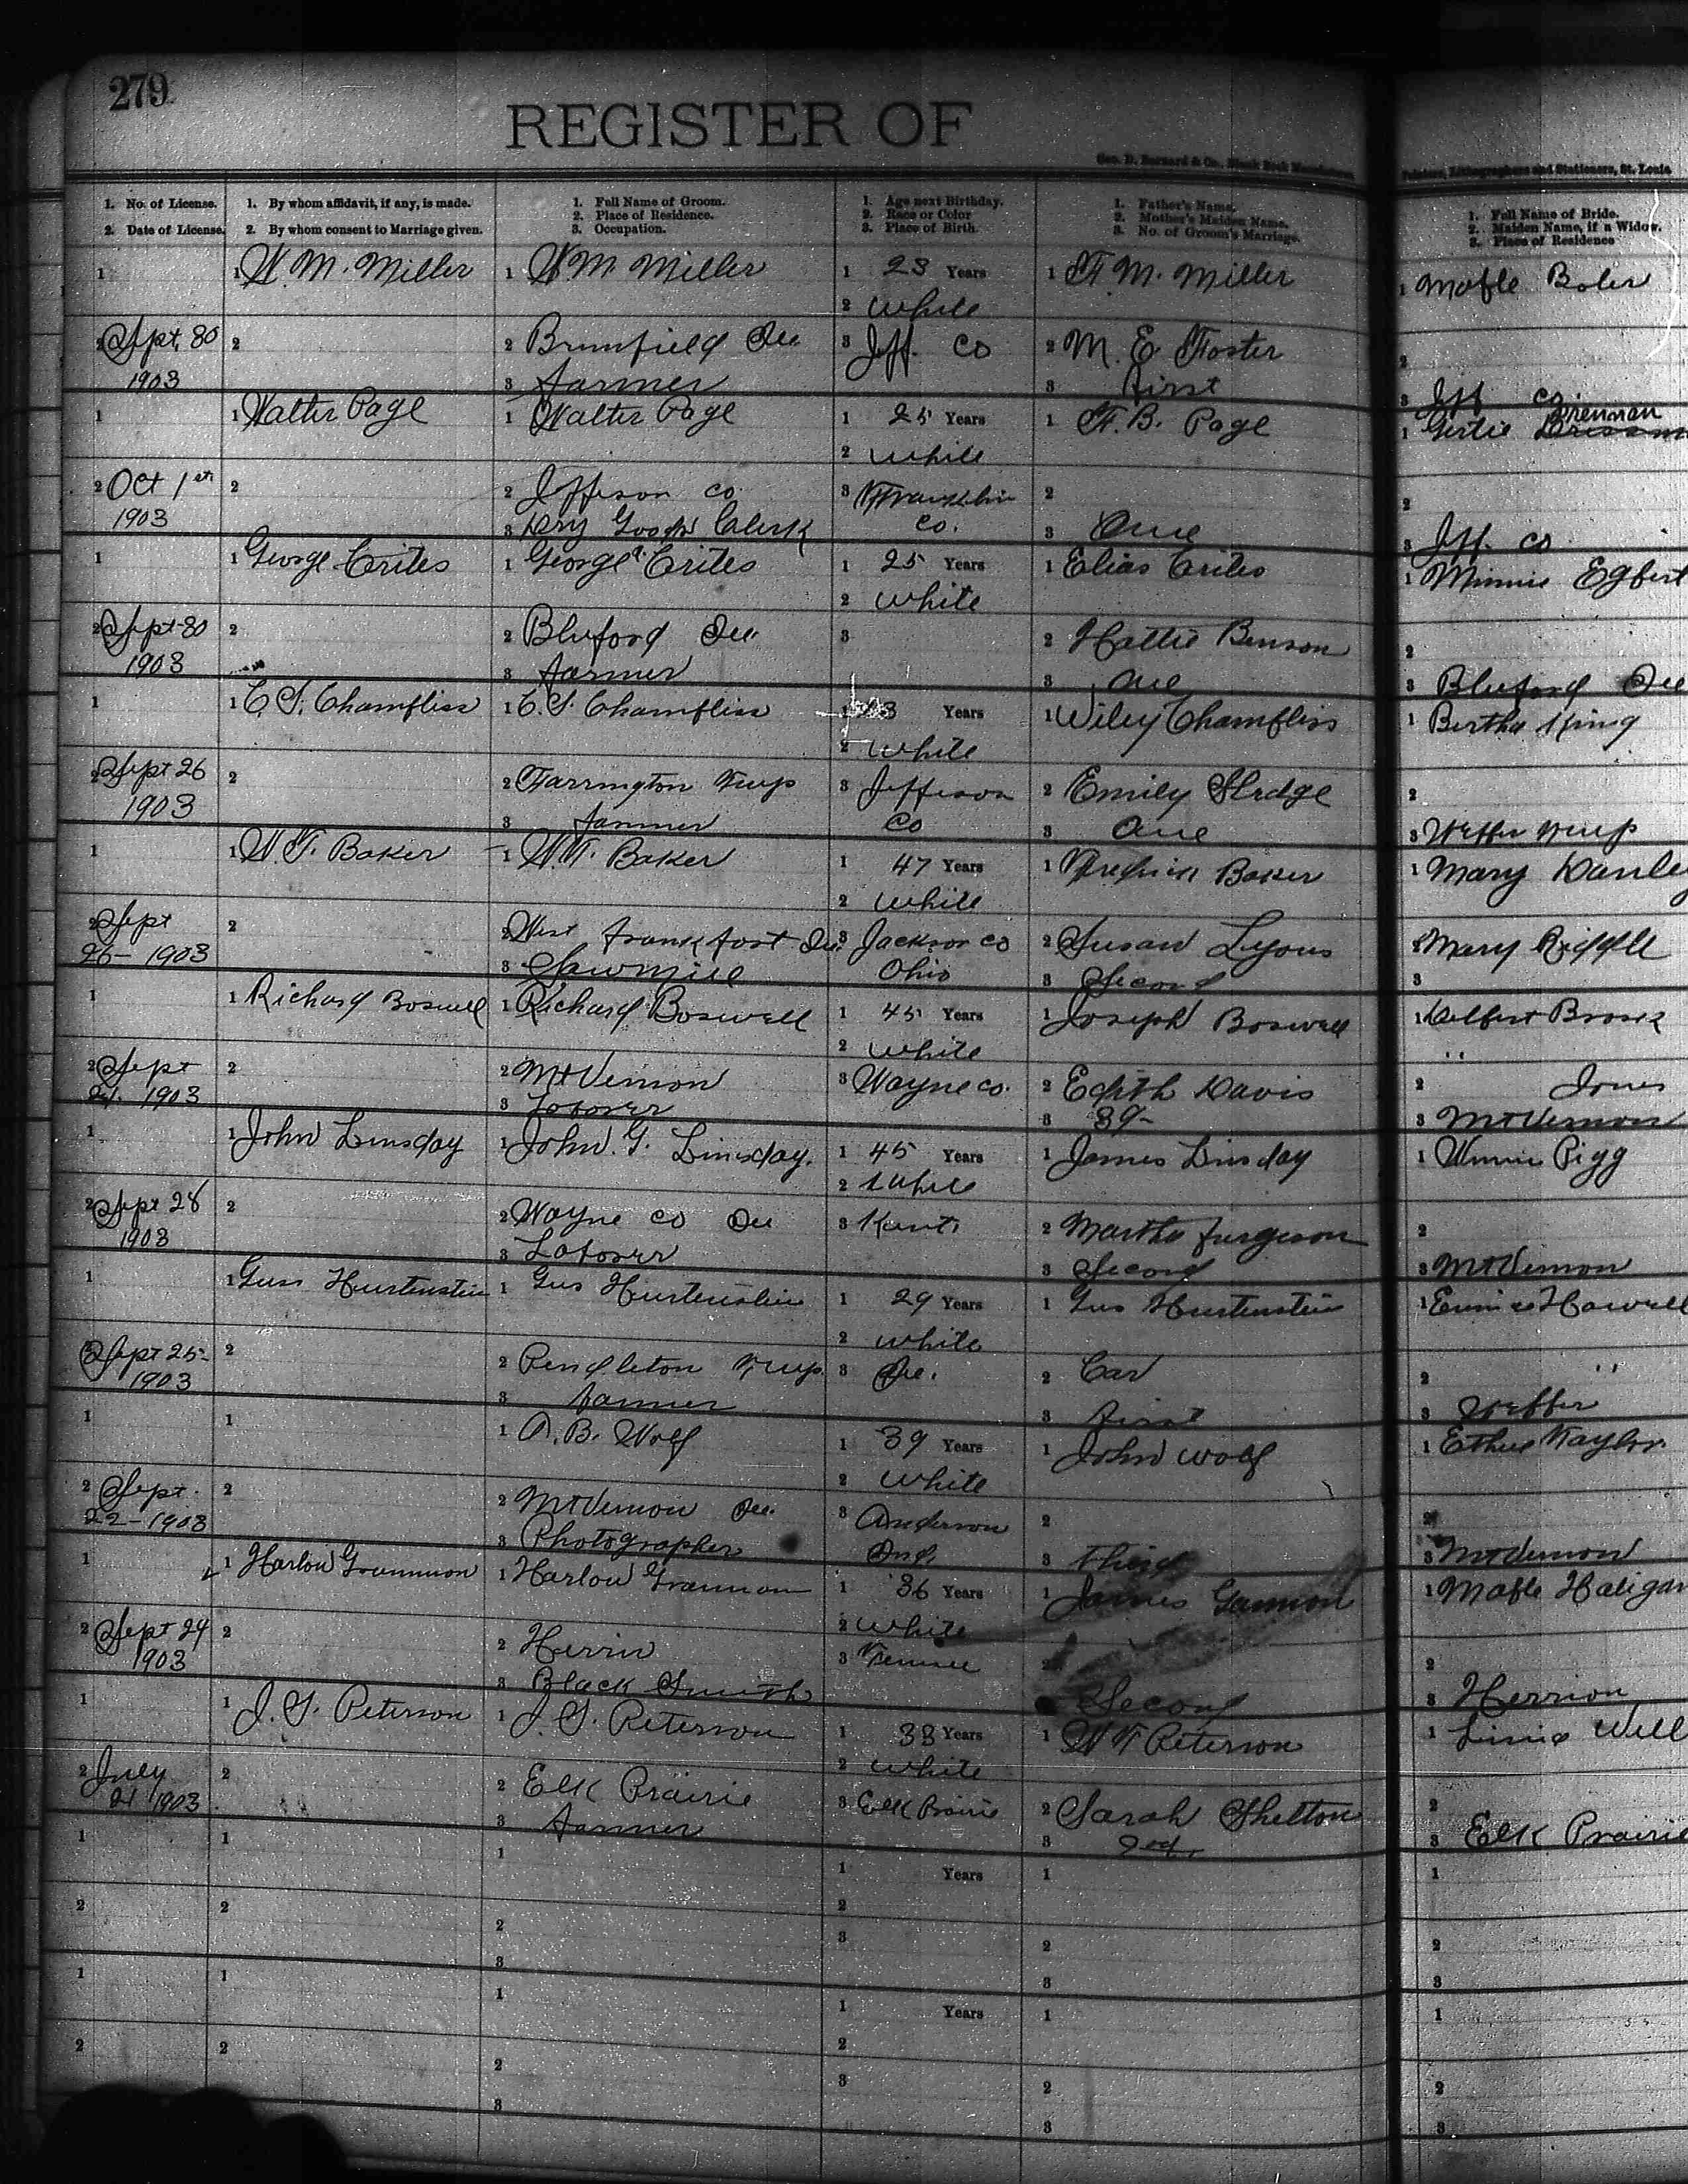 279
REGISTER OF
Geo. D. Barnard & Co., Blank Book Manufacturers, Printers, Lithographers and Stationers, St. Louis
1. No. of License.
2. Date of License.
1. By whom affidavit, if any, is made.
2. By whom consent to Marriage given.
1. Full Name of Groom.
2. Place of Residence.
3. Occupation.
1. Age next Birthday.
2. Race or Color
3. Place of Birth.
1. Father's Name.
2. Mother's Maiden Name.
3. No. of Groom's Marriage.
1. Full Name of Bride.
2. Maiden Name, if a Widow.
3. Place of Residence
1
2 Sept. 30
1903
1 W. M. Miller
2
1 W. M. Miller
2 Brumfield Ill
3 farmer
1 23 Years
2 White
3 Jeff. Co
1 F. M. Miller
2 M. E. Foster
3 first
1 Mable Boler
2
3 Jeff Co.
1
2 Oct 1st
1903
1 Walter Page
2
1 Walter Page
2 Jefferson Co
3 Dry Goods Clerk
1 25 Years
2 White
3 Franklin
Co.
1 F. B. Page
2
3 One
1 Gertie Brennan
2
3 Jeff. Co
1
2 Sept 30
1903
1 George Crites
2
1 George Crites
2 Bluford Ill
3 farmer
1 25 Years
2 White
3
1 Elias Crites
2 Hattie Benson
3 One
1 Minnie Egbert
2
3 Bluford Ill
1
2 Sept 26
1903
1 C. S. Chambliss
2
1 C. S. Chambliss
2 Farrington Twp
3 farmer
1 23 Years
2 White
3 Jefferson
Co
1 Wiley Chambliss
2 Emily Sledge
3 One
1 Bertha King
2
3 Webber Twp
1
2 Sept
26- 1903
1 W. T. Baker
2
1 W. T. Baker
2 West Frankfort Ill
3 Sawmill
1 47 Years
2 White
3 Jackson Co
Ohio
1 Fredrick Baker
2 Susan Lyons
3 Second
1 Mary Danley
2 Mary Riddle
3
1
2 Sept
1903
1 Richard Boswell
2
1 Richard Boswell
2 Mt Vernon
3 Laborer
1 45 Years
2 White
3 Wayne co.
1 Joseph Boswell
2 Edith Davis
3 3d-
1 Delbert Brock
"
2 Jones
3 Mt Vernon
1
2 Sept 28
1903
1 John Linsday
2
1 John. G. Linsday.
2 Wayne Co Ill
3 Laborer
1 45 Years
2 White
3 Kent.
1 James Linsday
2 Martha furgerson
3 Second
1 Winnie Pigg
2
3 Mt Vernon
1
2 Sept 25-
1903
1 Guss Hurtenstein
2
1 Gus Hurtenstein
2 Pendleton Twp.
3 farmer
1 29 Years
2 White
3 Ill.
1 Gus Hurtenstein
2 Car
3 first
1 Eunice Howell
2 "
3 Webber
1
2 Sept.
22- 1903
1
2
1 A. B. Wolf
2 Mt Vernon Ill.
3 Photographer
1 39 Years
2 White
3 Anderson
Ind.
1 John Wolf
2
3 third
1 Ethel Naylor.
2
3 Mt Vernon
1
2 Sept 24
1903
1 Harlow Grammon
2
1 Harlow Grammon
2 Herrin
3 Black Smith
1 36 Years
2 White
3 Tennee
1 James Gammon
2
3 Second
1 Mable Haligan
2
3 Herrion
1
2 July
21 1903
1 J. G. Peterson
2
1 J. G. Peterson
2 Elk Prairie
3 farmer
1 33 Years
2 White
3 Elk Prairie
1 W T Peterson
2 Sarah Shelton
3 2nd.
1 Will
2
3 Elk Prairie
1
2
1
2
1
2
3
1 Years
2
3
1
2
3
1
2
3
1
2
1
2
1
2
3
1 Years
2
3
1
2
3
1
2
3